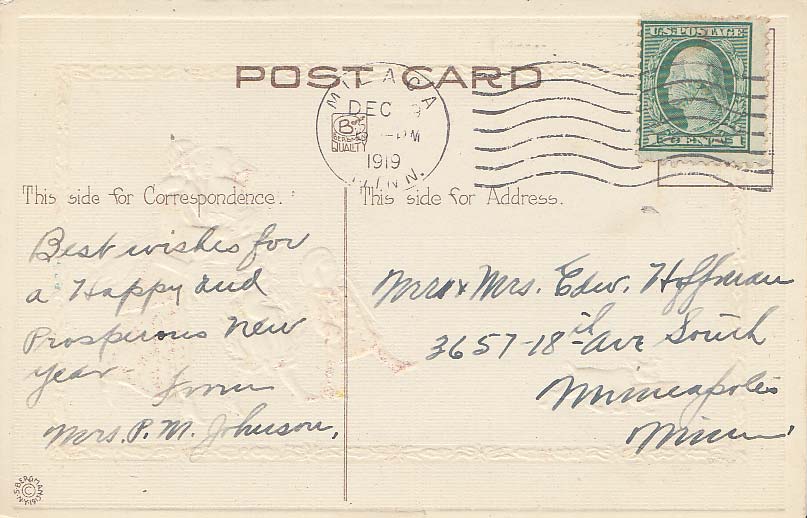 POST CARD
U.S. POSTAGE
MILACA
DEC
PM
1919
MINN.
B
QUALITY
This side for Correspondence.
This side for Address.
Best wishes for
a Happy and
Prosperous New
Year - from
Mrs. P. M. Johnson.
Mr & Mrs. Edw. Hoffman
3657-18th Ave South
Minneapolis
Minn
S. BERGMAN N.Y.
©